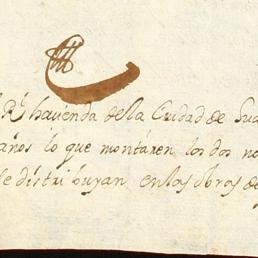 Rl hazienda de lla Ciudad de
años lo que montaren los dos
se distribuyan en las obras de